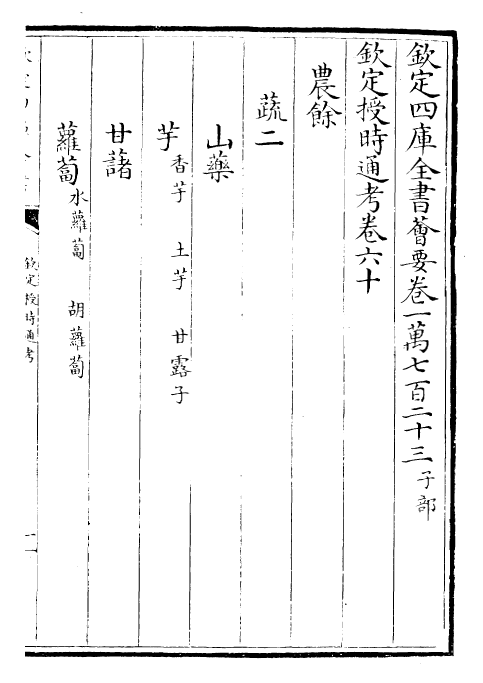 欽定四庫全書薈要卷一萬七百二十三子部
欽定授時通考卷六十
農餘
蔬二
山藥
芋香芋 土芋 甘露子
甘藷
蘿蔔水蘿蔔 胡蘿蔔
欽定授時通考